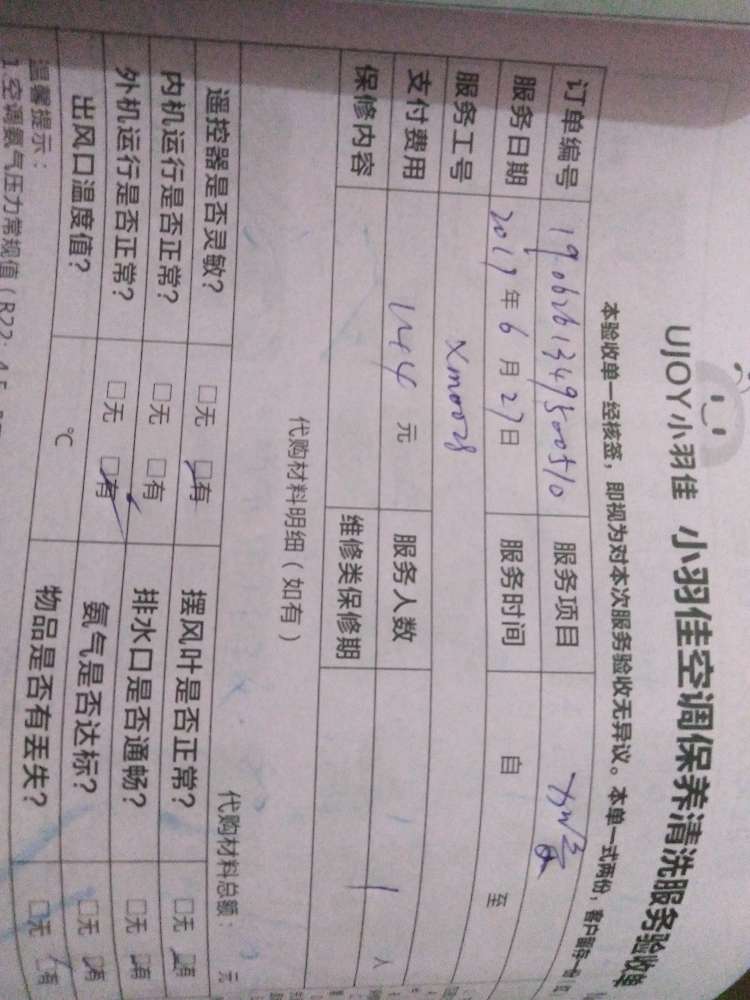 UJOY小羽佳 小羽佳空调保养清洗服务验收单
本验收单一经核签，即视为对本次服务验收无异议。本单一式两份，客户留存一份
订单编号 1906261349800510 服务项目
服务日期 2019年6月27日 服务时间 自 至
服务工号 xm0028
支付费用 144元 服务人数 1人
保修内容 维修类保修期
代购材料明细（如有） 代购材料总额： 元
遥控器是否灵敏？ □无 □有 摆风叶是否正常？ □无 □有
内机运行是否正常？ □无 □有 排水口是否通畅？ □无 □有
外机运行是否正常？ □无 □有 氨气是否达标？ □无 □有
出风口温度值？ ℃ 物品是否有丢失？ □无 □有
温馨提示：
1.空调氨气压力常规值（R22:4.5